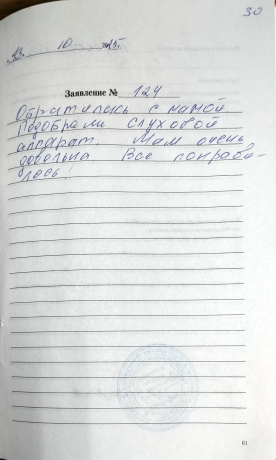 30
23. 10 25.
Заявление № 124
Обратились с мамой
Подобрали слуховой
аппарат. Мам очень
довельна Все понрави-
лось!
61